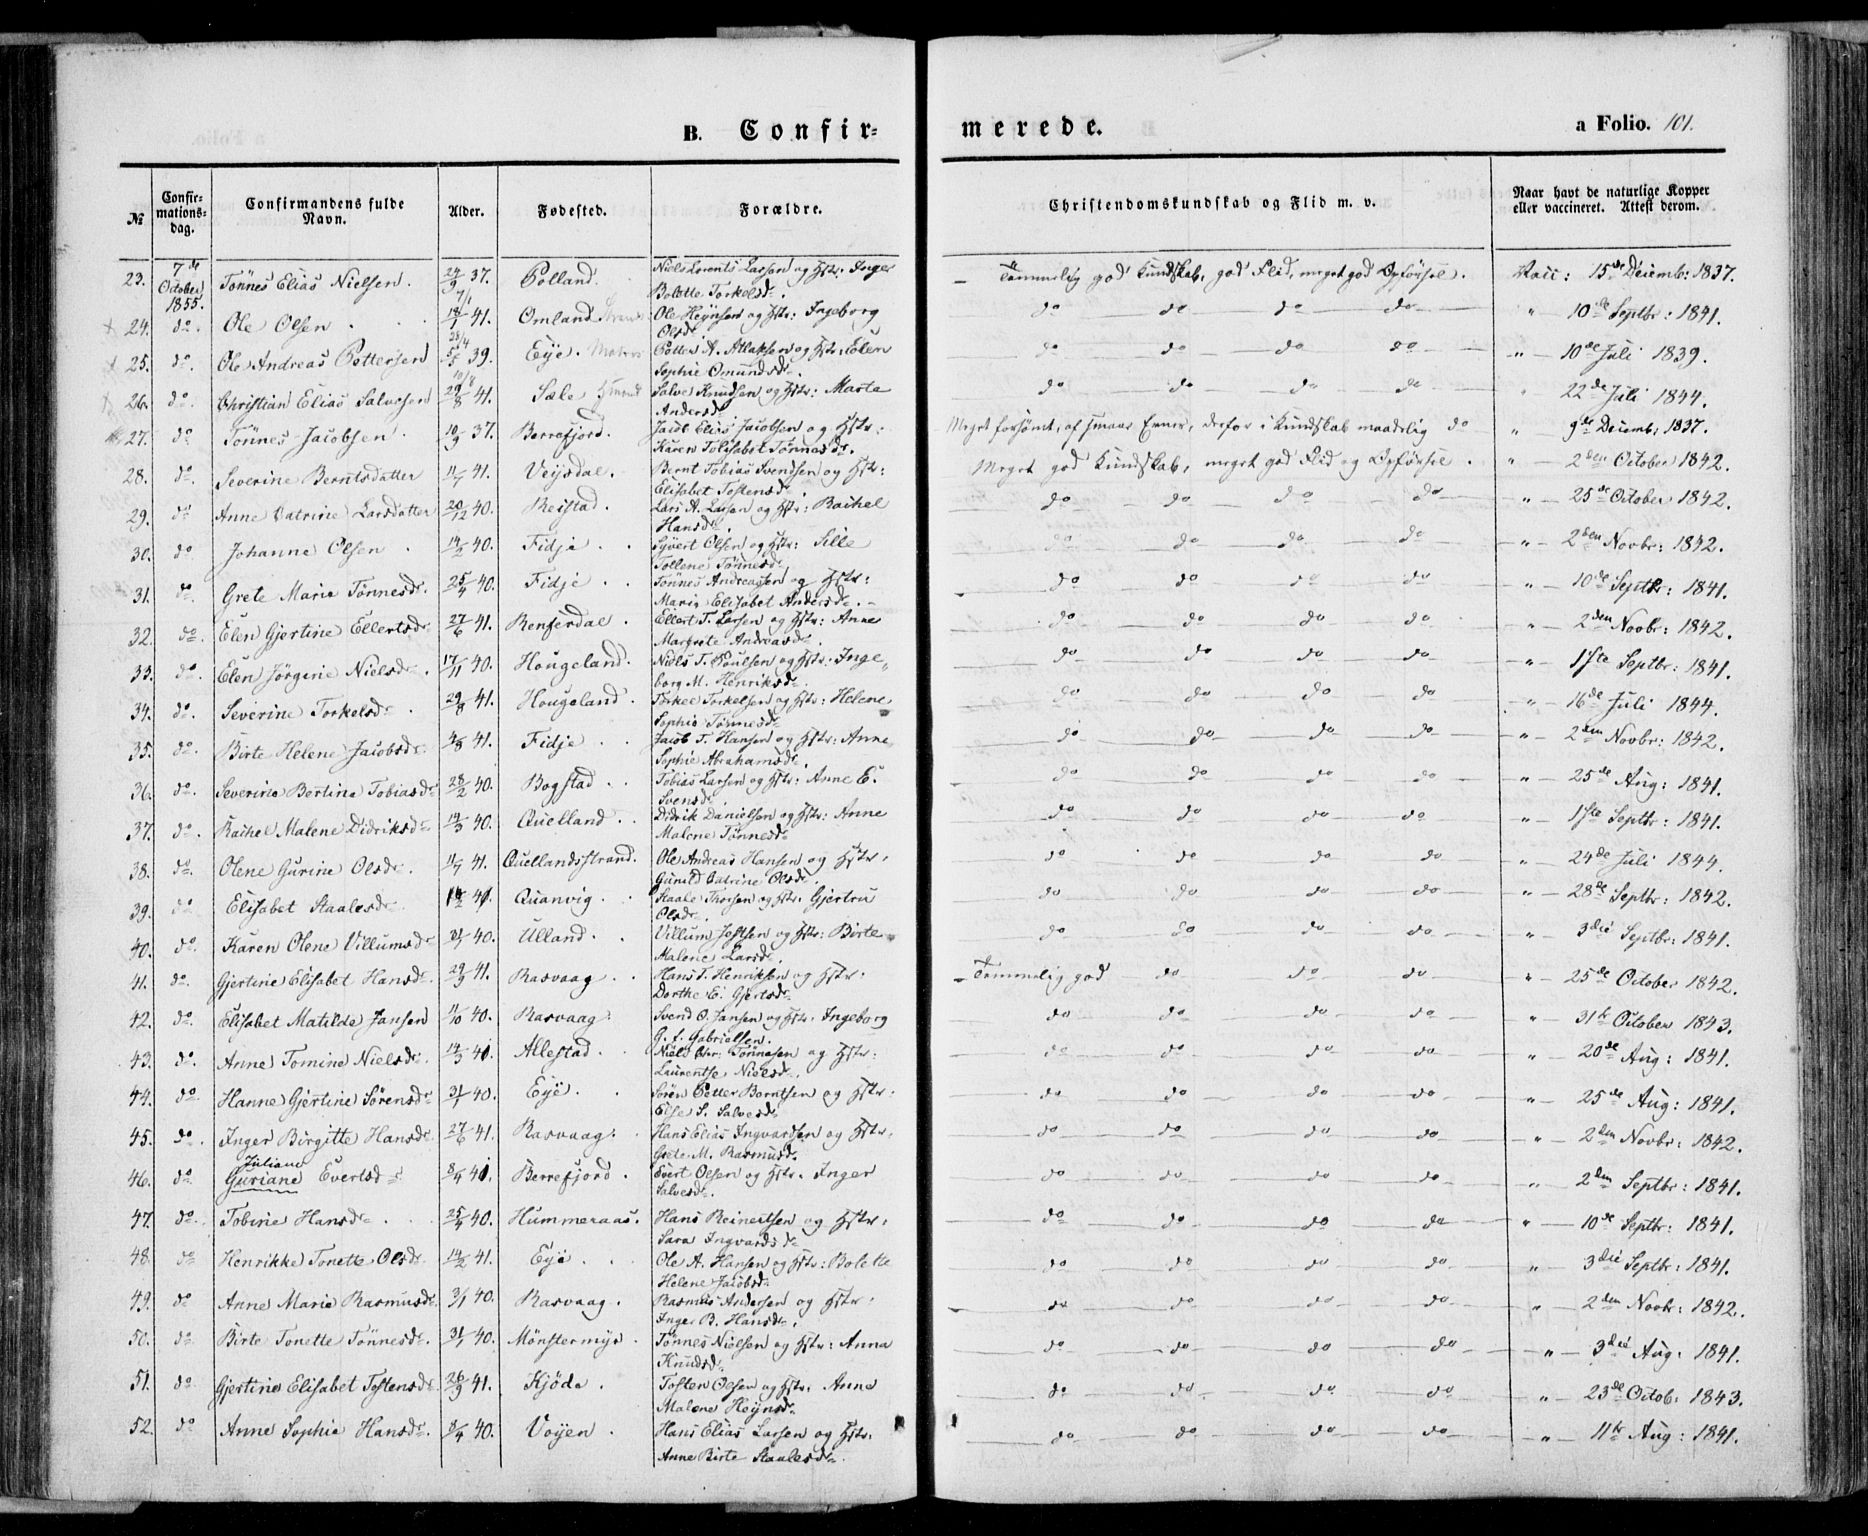 B. Confir-
merede.
a Folio. 101.
№
Confir-
mations-
dag.
Confirmandens fulde
Navn.
Alder.
Fødested.
Forældre.
Christendomskundskab og Flid m. v.
Naar havt de naturlige Kopper
eller vaccineret. Attest derom.
23. 7de October 1855. Tönnes Elias Nielsen. 24/9 37. Polland. Niels Lorents Larsen og Hstr: Inger Bolette Torkelsdr. Temmelig god Kundskab, god Flid, meget god Opförsel. Vacc: 15de Decemb: 1837.
24. do. Ole Olsen 18/1 41. Omland Ole Heynsen og Hstr: Ingeborg Olsdr do do do do " 10de Septbr: 1841.
25. do. Ole Andreas Pettersen 5/5 39. Eye. Petter A. Atlaksen og Hstr: Elen Sophie Omundsdr. do do do do " 10de Juli 1839.
26. do. Christian Elias Salvesen 29/8 41. Sæle Salve Knudsen og Hstr: Marta Andersdr do do do do " 22de Juli 1844.
27. do Tönnes Jacobsen. 10/9 37. Berrefjord. Jacob Elias Jacobsen og Hstr: Karen Tolisabet Tönnesdr. Meget forsömt, af smaae Evner, derfor i Kundskab maadelig do " 9de Decemb: 1837.
28. do. Severine Berntsdatter 11/7 41. Veisdal. Bernt Tobias Svendsen og Hstr: Elisabet Tostensdr. Meget god Kundskab, meget god Flid og Opförsel. " 2den October 1842.
29. do Anne Catrine Larsdatter 20/12 40. Reistad. Lars A. Larsen og Hstr: Rachel Hansdr. do do do do " 25de October 1842.
30. do Johanne Olsen 14/5 40. Fidje. Syvert Olsen og Hstr: Sille Tollene Tönnesdr do do do do " 2den Novbr: 1842.
31. do. Grete Marie Tönnesdr. 25/4 40. Fidje. Tönnes Andreassen og Hstr: Marie Elisabet Andersdr. do do do do " 10de Septbr: 1841.
32. do. Elen Gjertine Ellertsdr 27/6 41. Renserdal. Ellert T. Larsen og Hstr: Anne Margrete Andreasdr. do do do do " 2den Novbr: 1842.
33. do. Elen Jörgine Nielsdr. 17/11 40. Hougeland. Niels T. Poulsen og Hstr: Ingeborg M. Henriksdr. do do do do " 1ste Septbr: 1841.
34. do. Severine Torkelsdr. 29/8 41. Hougeland. Torkel Torkelsen og Hstr: Helene Sophie Tönnesdr do do do do " 16de Juli 1844.
35. do. Birte Helene Jacobsdr. 4/8 41. Fidje. Jacob T. Hansen og Hstr: Anne Sophie Abrahamsdr. do do do do " 2den Novbr: 1842.
36. do. Severine Bertine Tobiasdr 28/2 40. Bogstad. Tobias Larsen og Hstr: Anne E. Svensdr. do do do do " 25de Aug: 1841.
37. do. Rachel Malene Didriksdr 14/3 40. Quelland. Didrik Danielsen og Hstr: Anne Malene Tönnesdr do do do do " 1ste Septbr: 1841.
38. do. Olene Gurine Olsdr. 11/7 41. Quellandsstrand. Ole Andreas Hansen og Hstr. Gunild Catrine Olsdr. do do do do " 24de Juli 1844.
39. do Elisabet Staalesdr 41. Quanvig. Staale Thorsen og Hstr. Gjertru Olsdr. do do do do " 28de Septbr: 1842.
40. do. Karen Olene Villumsdr 40. Ulland. Villum Jestsen og Hstr: Birte Malene Larsdr. do do do do " 3die Septbr: 1841.
41. do. Gjertine Elisabet Hansdr 29/3 41. Rasvaag. Hans T. Henriksen og Hstr: Dorthe E. Gjertsdr Temmelig god do do do " 25de October 1842.
42. do. Elisabet Matilde Jansen 11/10 40. Rasvaag. Svend O. Jansen og Hstr. Ingeborg G. f. Gabrielsen. do do do do " 31te October 1843.
43. do. Anne Tomine Nielsdr. 14/3 40. Allestad. Niels Chr: Tönnesen og Hstr: Laurentse Nielsdr. do do do do " 20de Aug: 1841.
44. do Hanne Gjertine Sörensdr 31/1 40. Eye. Sören Petter Berntsen og Hstr: Else S. Salvesdr do do do do " 25de Aug: 1841.
45. do. Inger Birgitte Hansdr. 27/6 41. Rasvaag. Hans Elias Ingvardsen og Hstr. Grete M. Rasmusdr. do do do do " 2den Novbr: 1842.
46. do Juliane Guriane Evertsdr 8/4 41. Berrefjord. Evert Olsen og Hstr. Inger Salvesdr. do do do do " 2den Septbr: 1841.
47. do. Tobine Hansdr. 25/4 40. Hummeraas. Hans Reinertsen og Hstr: Sara Ingvardsdr do do do do " 10de Septbr: 1841.
48. do Henrikke Tonette Olsdr 14/2 41. Eye. Ole A. Hansen og Hstr: Bolette Helene Jacobsdr. do do do do " 3die Septbr: 1841.
49. do Anne Marie Rasmusdr. 3/1 40. Rasvaag. Rasmus Andersen og Hstr: Inger B. Hansdr. do do do do " 2den Novbr: 1842.
50. do. Birte Tonette Tönnesdr. 31/1 40. Mönstermyr. Tönnes Nielsen og Hstr: Anna Knudsdr do do do do " 3die Aug: 1841.
51. do Gjertine Elisabet Tostensdr. 26/9 41. Kjöde. Tosten Olsen og Hstr: Anne Malene Heynsdr. do do do do " 23de Octob: 1843.
52. do Anne Sophie Hansdr. 8/4 40. Voyen. Hans Elias Larsen og Hstr. Anne Birte Staalesdr. do do do do " 11te Aug: 1841.